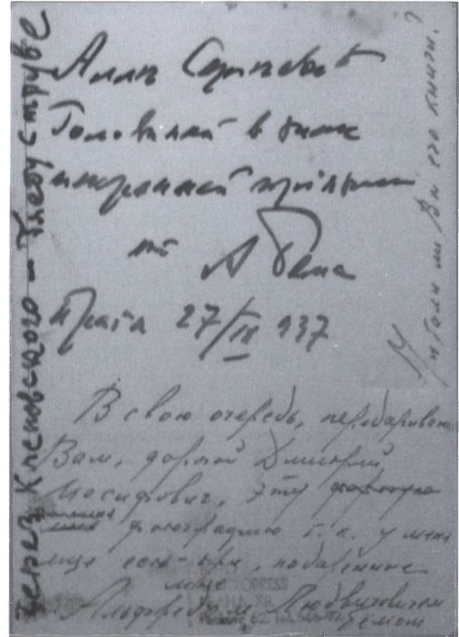 Алле Сергеевне
Головиной в знак
искренней приязни
от А Бема
Прага 27/III 937
В свою очередь, передариваю
Вам, дорогой Дмитрий
Иосифович, эту
фотографию т.к. у меня
еще есть три, подаренные
мне
Альфредом Людвиговичем
Бемом
через Кленовского – Глебу Струве
Читали ли Вы его книги?